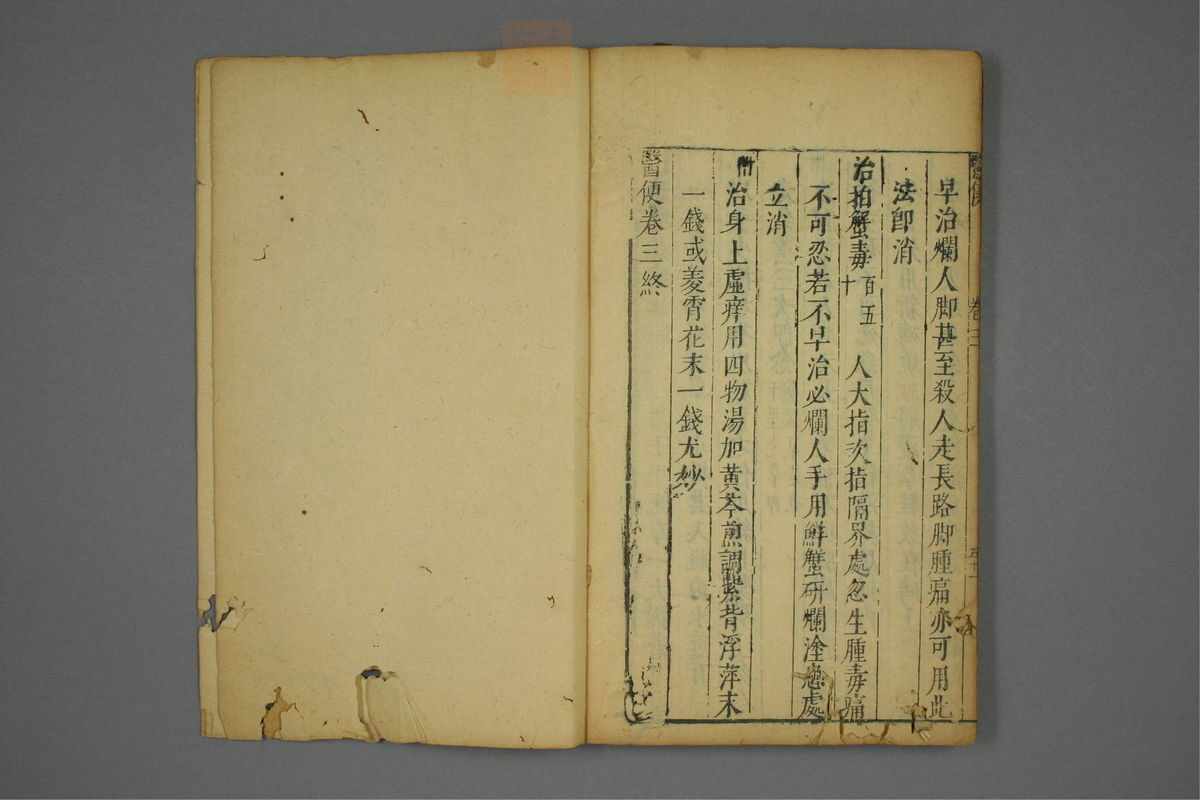 醫便 卷三 五十一
早治爛人脚甚至殺人走長路脚腫痛亦可用此
法卽消
治拍蟹毒 百五十 人大指次指隔界處忽生腫毒痛
不可忍若不早治必爛人手用鮮蟹研爛塗患處
立消
附 治身上虛痒用四物湯加黃芩煎調紫背浮萍末
一錢或菱霄花末一錢尤妙
醫便卷三終